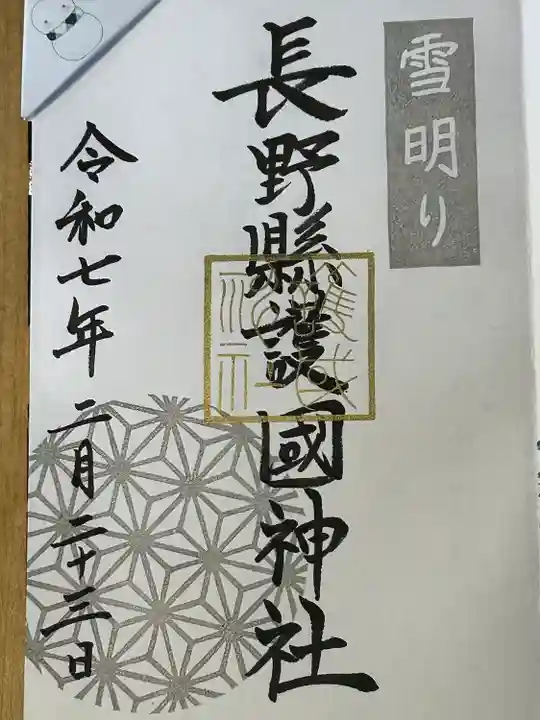 雪明り
長野縣護國神社
令和七年二月二十三日